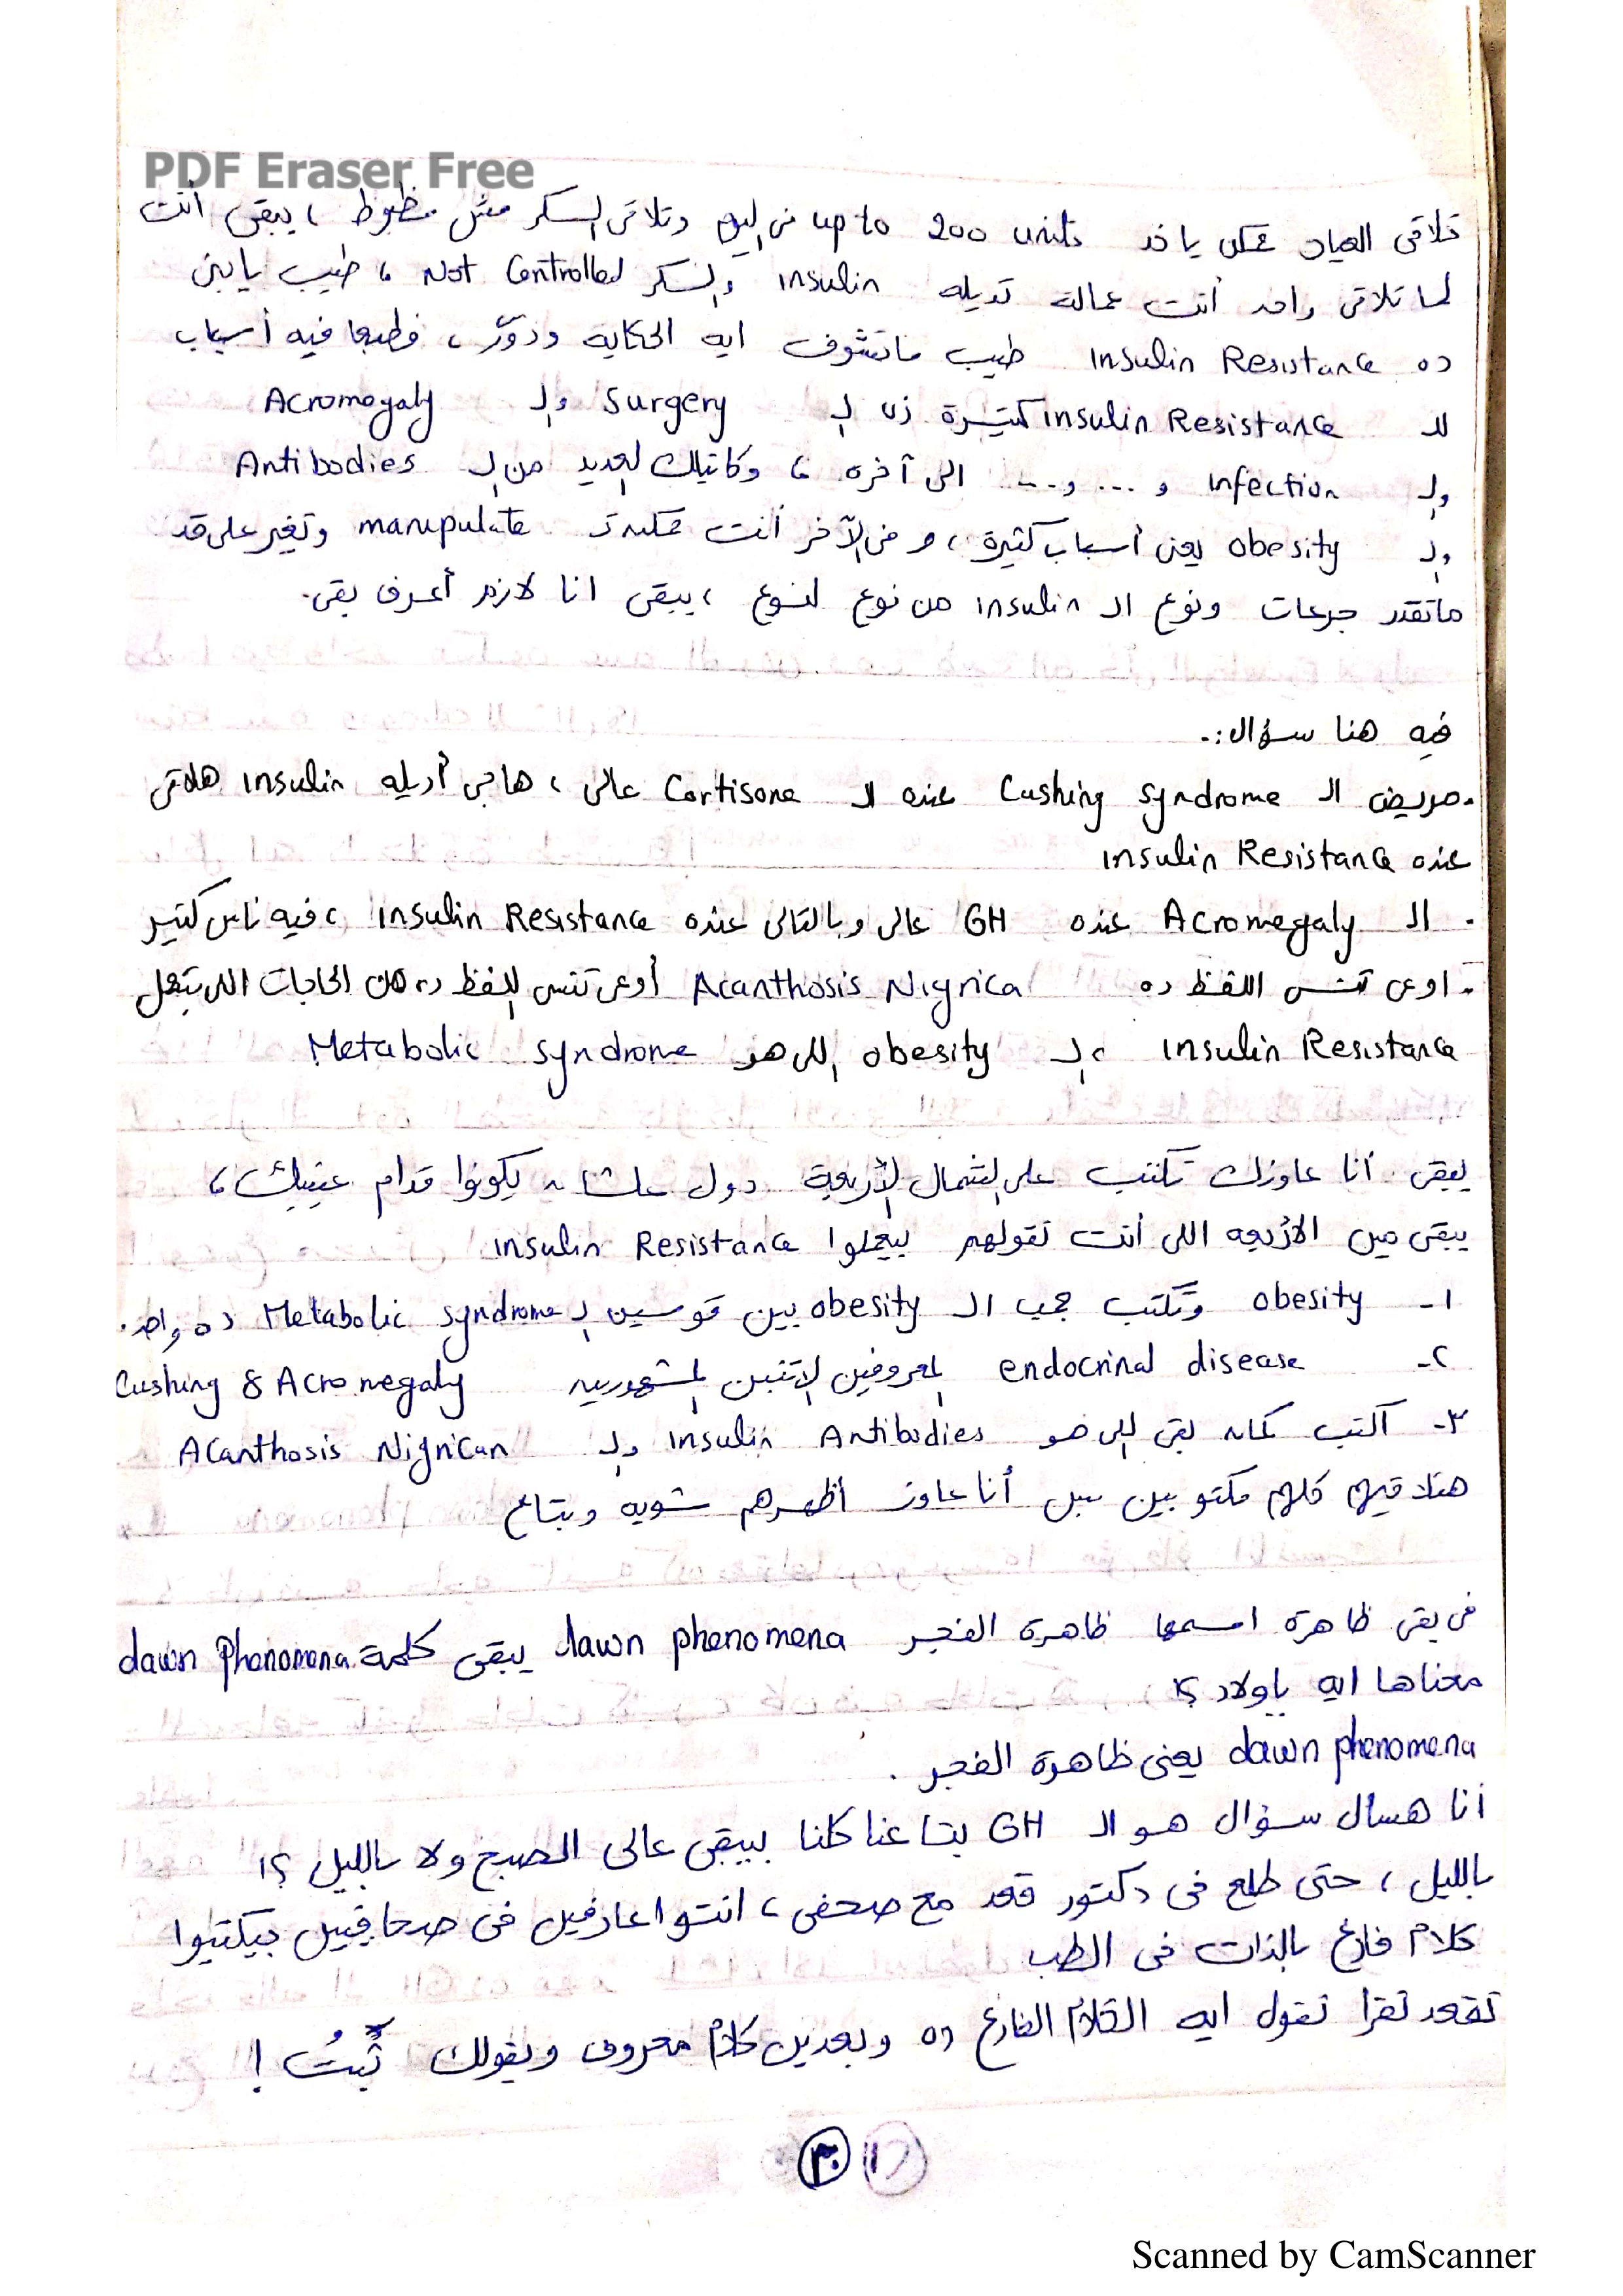 PDF Eraser Free
تلاقى العيان ممكن ياخد up to 200 units فى اليوم وتلاقى السكر مش مظبوط ، يبقى أنت
لما تلاقى واحد أنت عمالت تديله insulin والسكر Not Controlled ، طيب يا بنى
ده Insulin Resistance طيب ماتشوف ايه الحكاية ودوّر ، فطبعا فيه أسباب
لل insulin Resistance كتيرة زى ال surgery وال Acromegaly
وال infection و ... و... الى آخره ، وكاتبلك العديد من ال Antibodies
وال obesity يعنى أسباب كثيرة ، و فى الآخر أنت ممكن manupulate وتغير على قد
ماتقدر جرعات ونوع ال insulin من نوع لنوع ، يبقى انا لازم أعرف بقى.
فيه هنا سؤال :.
. مريض ال Cushing syndrome عنده ال Cortisone عالى ، هاجى أديله insulin هلاقى
عنده insulin Resistance
. ال Acromegaly عنده GH عالى وبالتالى عنده insulin Resistance ، فيه ناس كتير
. اوعى تنسى اللفظ ده Acanthosis Nigrica أوعى تنسى اللفظ ده من الحاجات اللى بتعمل
insulin Resistance ، ال obesity اللى هو Metabolic syndrome
يبقى أنا عاوزك تكتب على الشمال الأربعة دول علشان يكونوا قدام عينيك ،
يبقى مين الأربعه اللى أنت تقولهم بيعملوا insulin Resistance
١- obesity وتكتب جمب ال obesity بين قوسين ال Metabolic syndrome ده واحد.
٢- endocrinal disease المعروفين الاتنين المشهورين Cushing & Acromegaly
٣- اكتب كمان بقى اللى هو insulin Antibodies وال Acanthosis Nigrican
هتلاقيهم كلهم مكتوبين بس أنا عاوز أظهرهم شويه وبتاع
فى بقى ظاهرة اسمها ظاهرة الفجر dawn phenomena يبقى كلمة dawn Phenomena
معناها ايه ياولاد ؟!
dawn phenomena يعنى ظاهرة الفجر .
أنا هسأل سؤال هو ال GH بتاعنا كلنا بيبقى عالى الصبح ولا بالليل ؟!
بالليل ، حتى طلع فى دكتور قعد مع صحفى ، انتوا عارفين فى صحافيين بيكتبوا
كلام فارغ بالذات فى الطب
تقعد تقرا تقول ايه الكلام الفارغ ده وبعدين كلام معروف ويقولك ثَبُتَ !
٣٠
Scanned by CamScanner